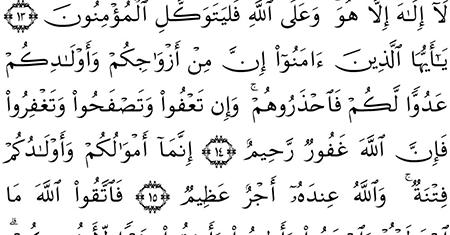 لَآ إِلَـٰهَ إِلَّا هُوَ ۚ وَعَلَى ٱللَّهِ فَلْيَتَوَكَّلِ ٱلْمُؤْمِنُونَ ١٣
يَـٰٓأَيُّهَا ٱلَّذِينَ ءَامَنُوٓا۟ إِنَّ مِنْ أَزْوَٰجِكُمْ وَأَوْلَـٰدِكُمْ
عَدُوًّا لَّكُمْ فَٱحْذَرُوهُمْ ۚ وَإِن تَعْفُوا۟ وَتَصْفَحُوا۟ وَتَغْفِرُوا۟
فَإِنَّ ٱللَّهَ غَفُورٌ رَّحِيمٌ ١٤ إِنَّمَآ أَمْوَٰلُكُمْ وَأَوْلَـٰدُكُمْ
فِتْنَةٌ ۚ وَٱللَّهُ عِندَهُۥٓ أَجْرٌ عَظِيمٌ ١٥ فَٱتَّقُوا۟ ٱللَّهَ مَا